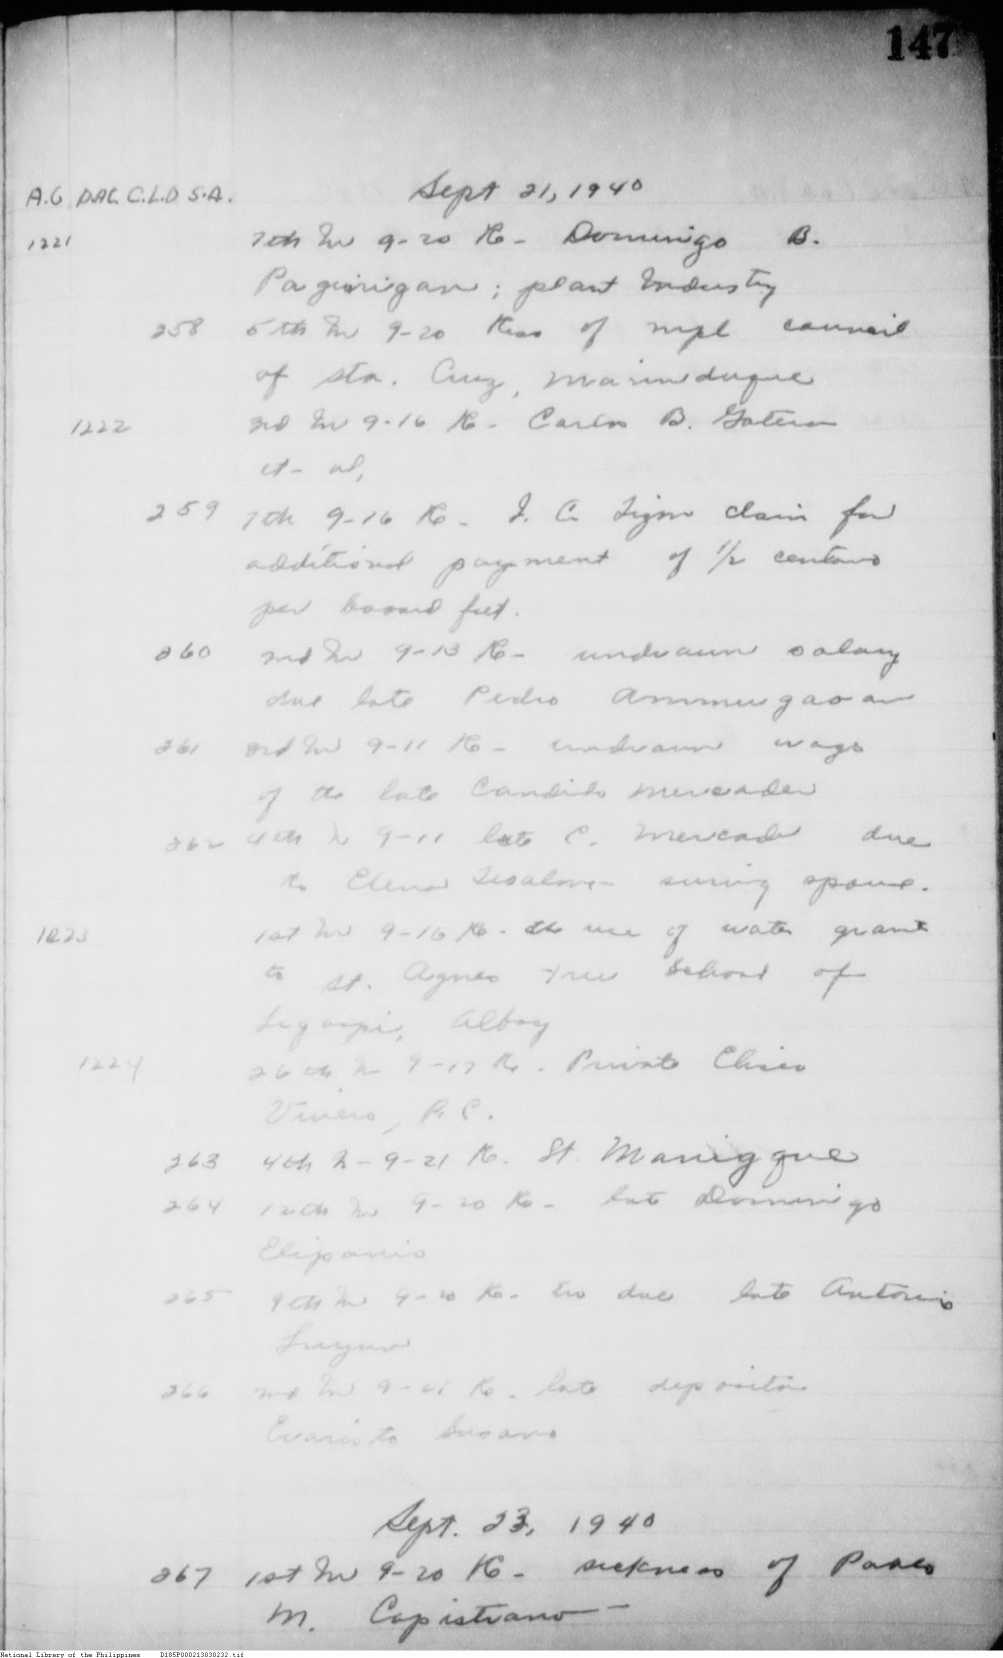 147
A.G DAC. C.L.D S.A. Sept 21, 1940
1221 7th In 9-20 Re- Domingo B.
Paguirigan; plant Industry
258 5th In 9-20 Reso of mpl council
of Sta. Cruz, Marinduque
1222 3rd In 9-16 Re- Carlos B.
et- al,
259 7th 9-16 Re- claim for
additional payment of 1/2 centavo
per board feet.
260 2nd In 9-13 Re- undrawn salary
due late Pedro
261 3rd In 9-11 Re- undrawn wage
of the late Candido Mercader
262 4th In 9-11 late C. Mercader due
to Elena spouse.
1223 1st In 9-16 Re- the use of water grant
to St. Agnes Free School of
Legaspi, Albay
1224 26th In 9-17 Re. Private Eliseo
P.C.
263 4th In- 9-21 Re. St.
264 12th In 9-20 Re- late Domingo
Elipanio
265 9th In 9-20 Re- due late Antonio
266 2nd In Re. late depositor
Evaristo Susano
Sept. 23, 1940
267 1st In 9-20 Re- sickness of Pablo
M. Capistrano-
National Library of the Philippines D185P000213030232.tif